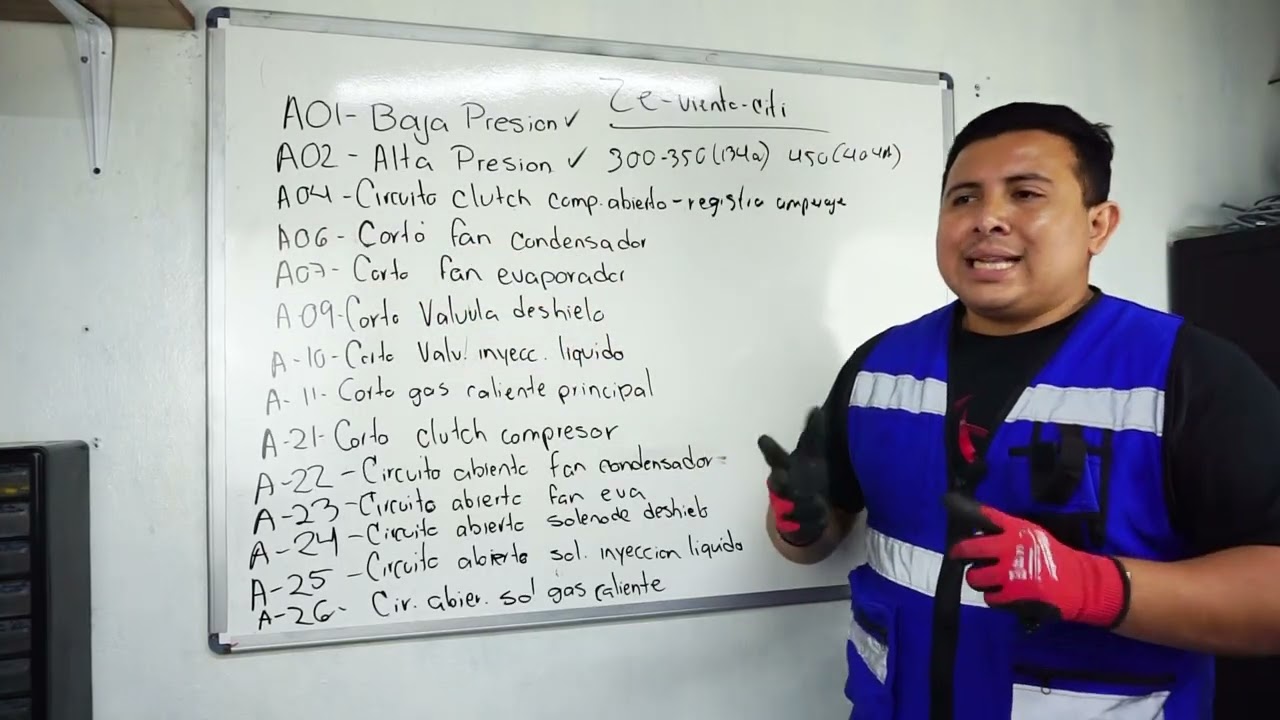 Ze-viento-citi
A01- Baja Presion ✓
A02 - Alta Presion ✓ 300-350(134a) 450(404A)
A04 - Circuito clutch comp. abierto - registra amperaje
A06 - Corto fan condensador
A07 - Corto fan evaporador
A09-Corto Valvula deshielo
A-10-Corto Valv. inyecc. liquido
A-11- Corto gas caliente principal
A-21- Corto clutch compresor
A-22 - Circuito abierto fan condensador
A-23 - Circuito abierto fan eva
A-24 - Circuito abierto solenoide deshielo
A-25 - Circuito abierto sol. inyeccion liquido
A-26- Cir. abier. sol gas caliente